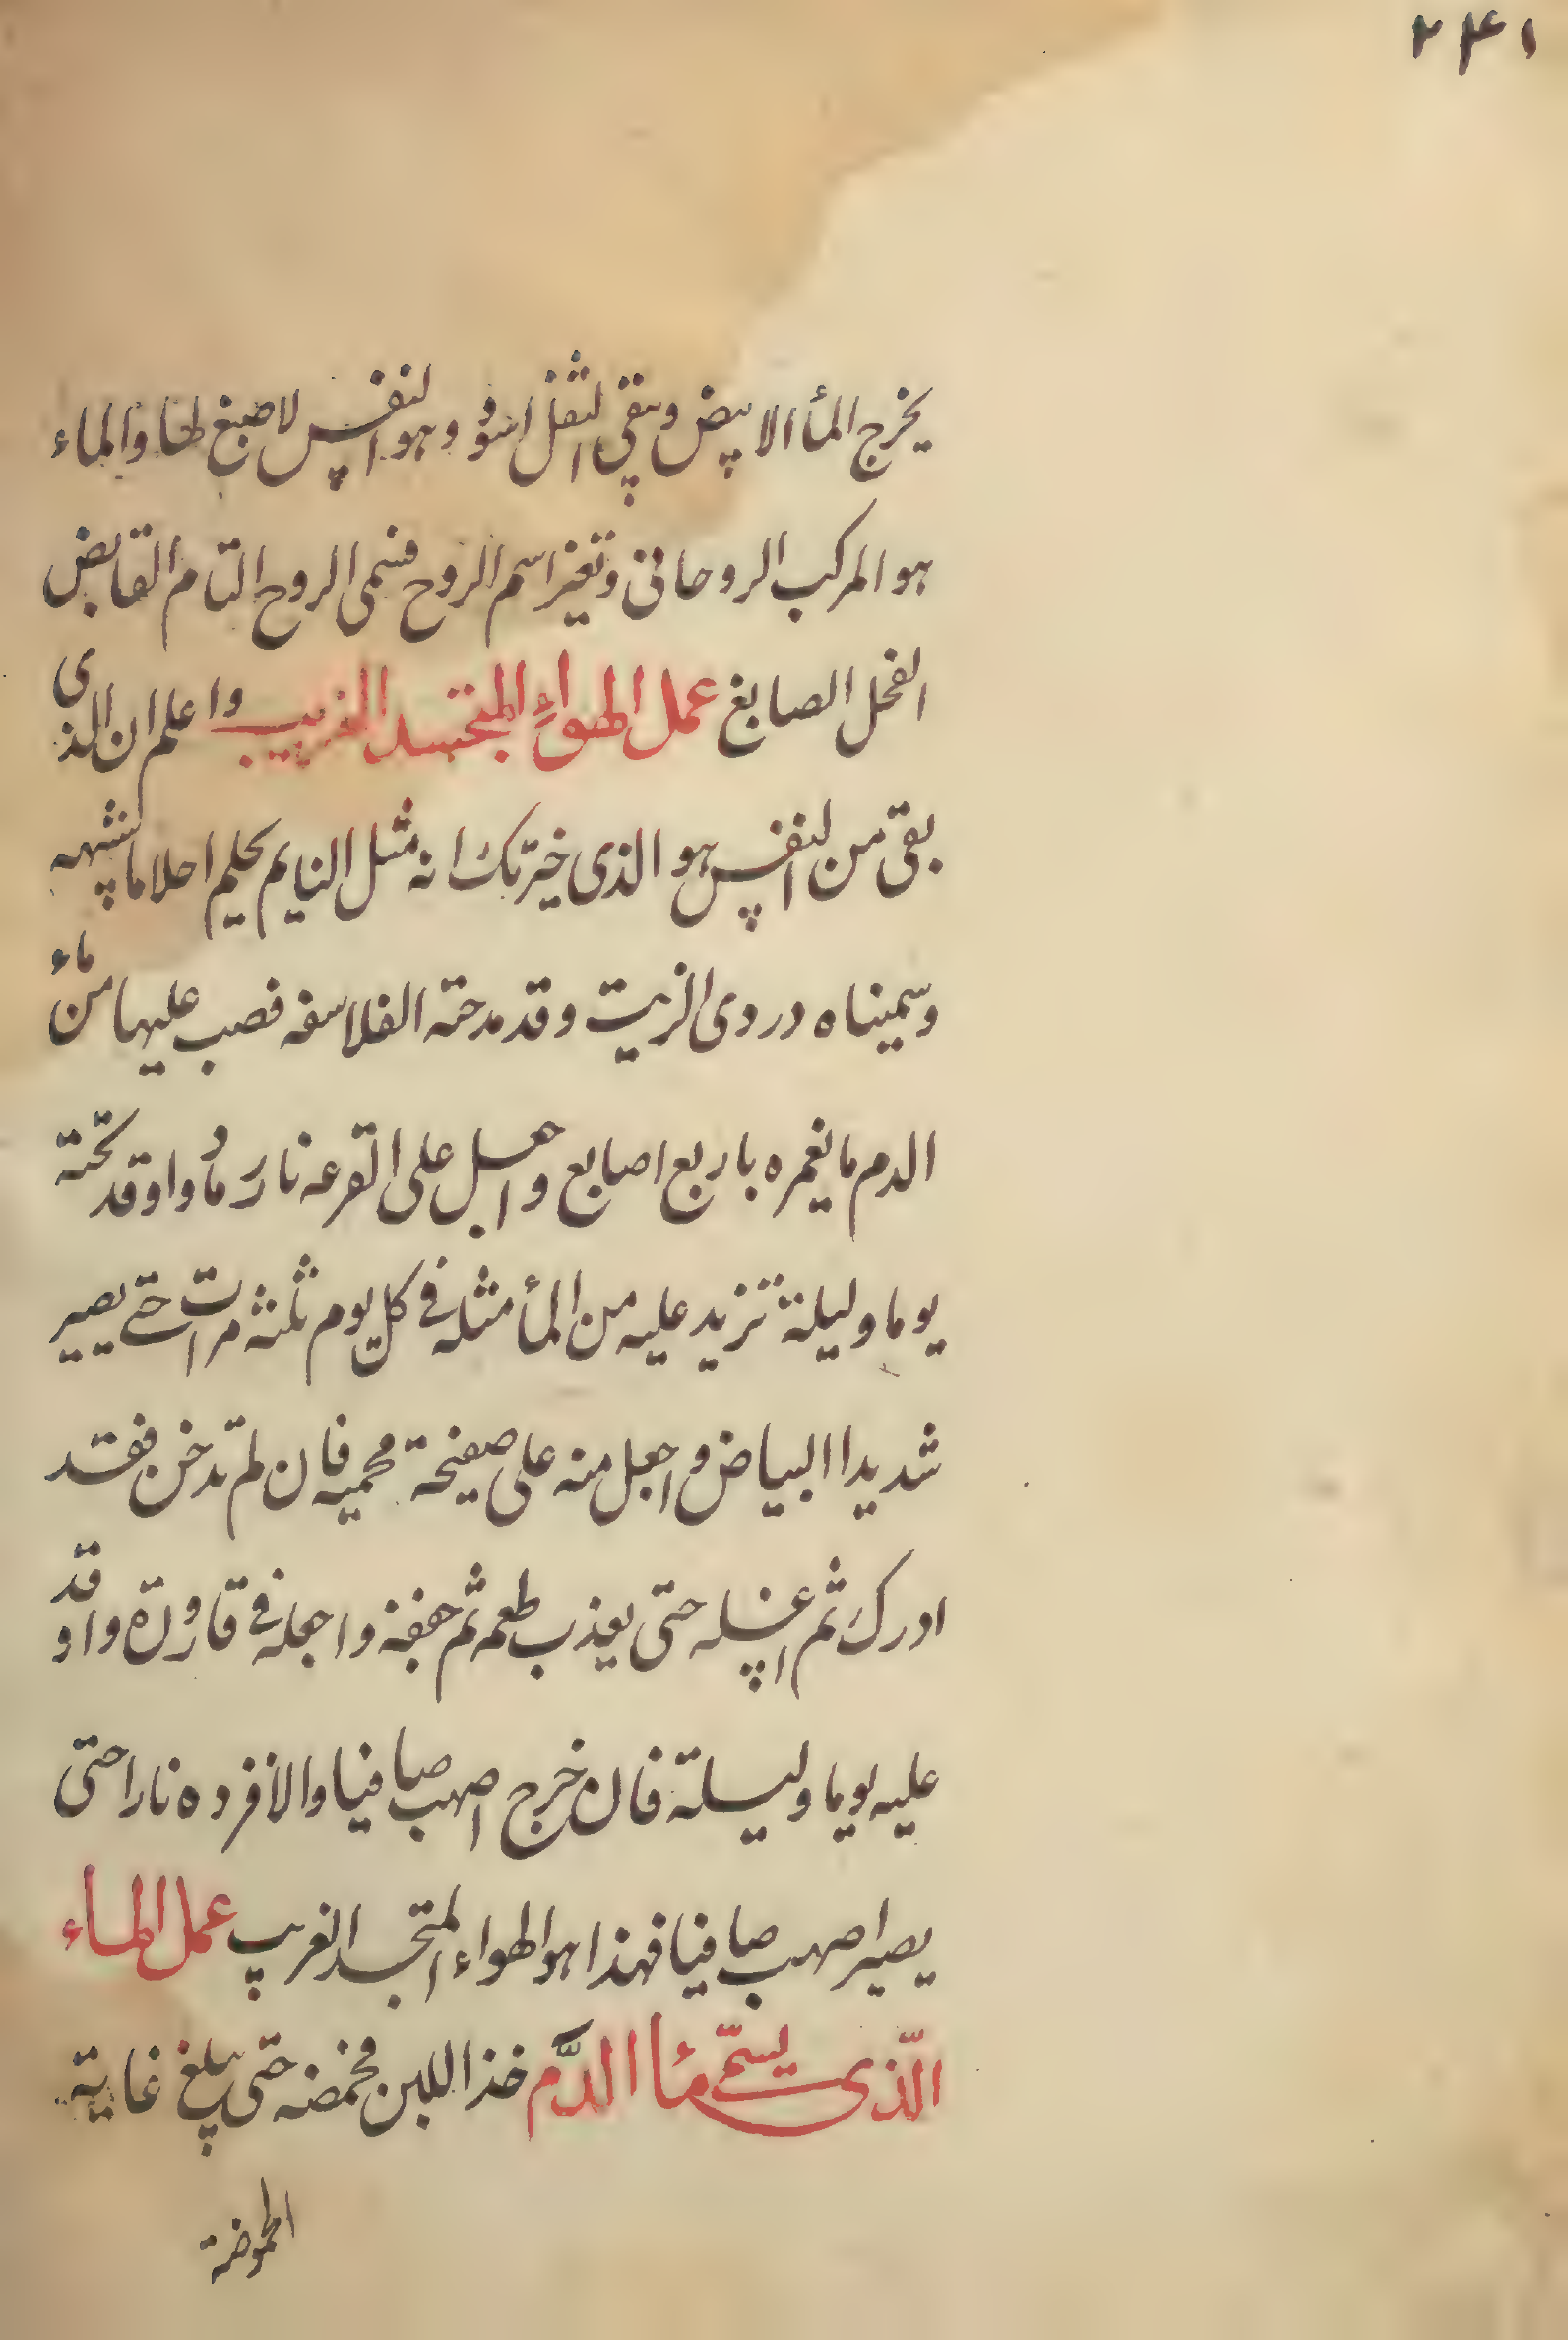 ٢۴١
يخرج المأ الابيض ويبقى الثفل اسود وهو النفس لا صبغ لها والماء
هو المركب الروحانى وتغير اسم الروح فسمى الروح التام القابض
الفحل الصابغ عمل الهواء المتجسد الغريب واعلم ان الذى
بقى من النفس هو الذى خبرتك انه مثل النايم يحلم احلاما
وسميناه دردى الزيت وقد مدحته الفلاسفه فصب عليها من ماء
الدم ما يغمره باربع اصابع واجعل على القرعه نار رماد واوقد تحته
يوما وليلة تزيد عليه من المأ مثله فى كل يوم ثلثة مرات حتى يصير
شديدا البياض واجعل منه على صفيحة محميه فان لم تدخن فقد
ادرك ثم اغسله حتى يعذب طعمه ثم جففه واجعله فى قارورة واوقد
عليه يوما وليلة فان خرج اصهب صافيا والا فزده نارا حتى
يصير اصهب صافيا فهذا هو الهواء المتجسد الغريب عمل الماء
الّذى يسمّى مأ الدّم خذ اللبن فحمضه حتى يبلغ غاية
الحموضة